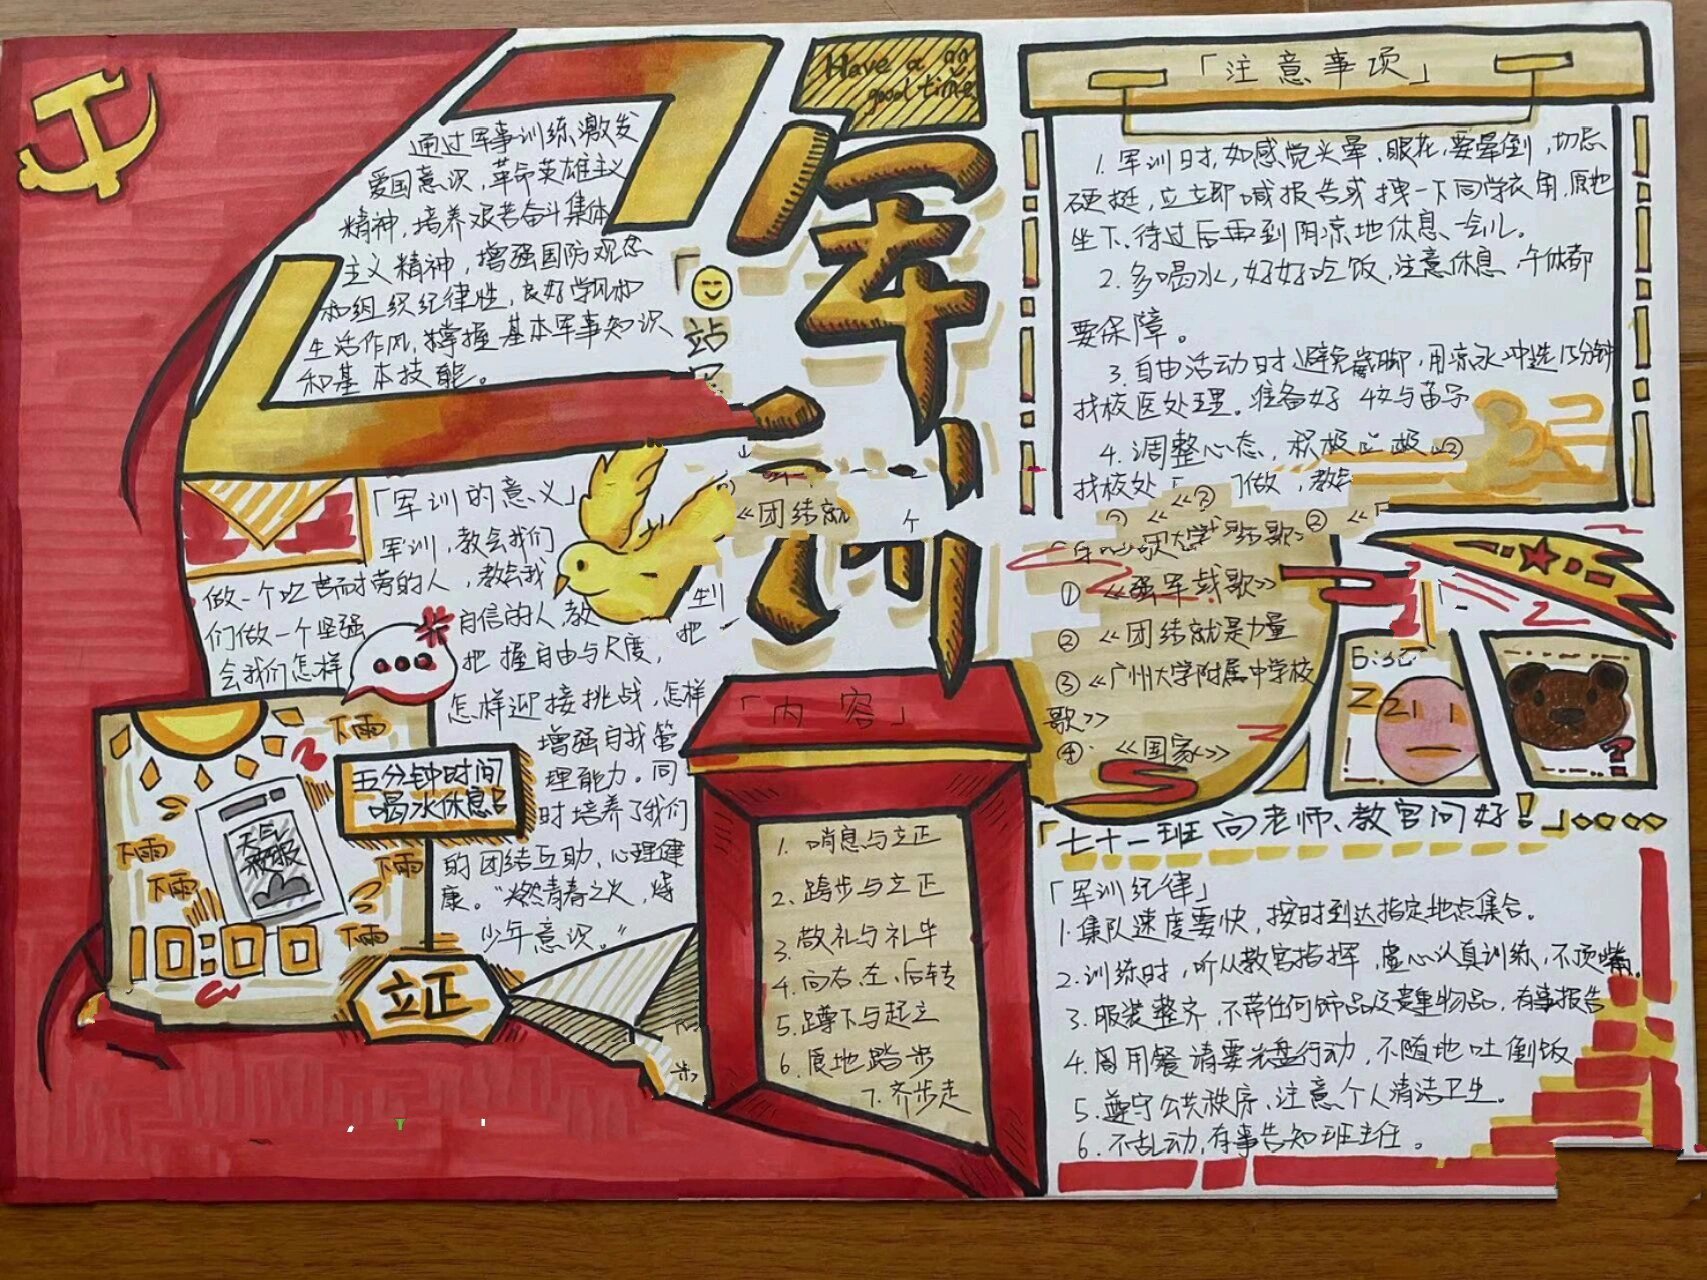 Have a good time
军训
通过军事训练,激发
爱国意识,革命英雄主义
精神,培养艰苦奋斗集体
主义精神,增强国防观念
和组织纪律性,良好学风和
生活作风,掌握基本军事知识
和基本技能。
站
「军训的意义」
军训,教会我们
做一个吃苦耐劳的人,教会我
们做一个坚强
自信的人,教
会我们怎样
把握自由与尺度,
怎样迎接挑战,怎样
增强自我管
理能力。同
时培养了我们
的团结互助,心理健
康。“燃青春之火,炼
少年意识。”
下雨
五分钟时间
喝水休息
天气
预报
下雨
下雨
下雨
下雨
10:00
立正
《团结就
个
把
步
「内容」
1. 稍息与立正
2. 跨步与立正
3. 敬礼与礼毕
4. 向右、左、后转
5. 蹲下与起立
6. 原地踏步
7. 齐步走
「注意事项」
1. 军训时,如感觉头晕、眼花,要晕倒,切忌
硬挺,立立即喊报告或拽一下同学衣角,原地
坐下、待过后再到阴凉地休息一会儿。
2. 多喝水,好好吃饭,注意休息,午休都
要保障。
3. 自由活动时避免崴脚,用凉水冲洗15分钟
找校医处理。准备好
4. 调整心态,积极
找校处
做,教会
① 《强军战歌》
② 《团结就是力量
③ 《广州大学附属中学校
歌》
④. 《国家》
6:30
ZZ
?
「七十一班向老师、教官问好!」
「军训纪律」
1. 集队速度要快,按时到达指定地点集合。
2. 训练时,听从教官指挥,虚心认真训练,不顶嘴。
3. 服装整齐,不带任何饰品及贵重物品,有事报告
4. 周用餐请要光盘行动,不随地吐倒饭
5. 遵守公共秩序、注意个人清洁卫生。
6. 不乱动,有事告知班主任。